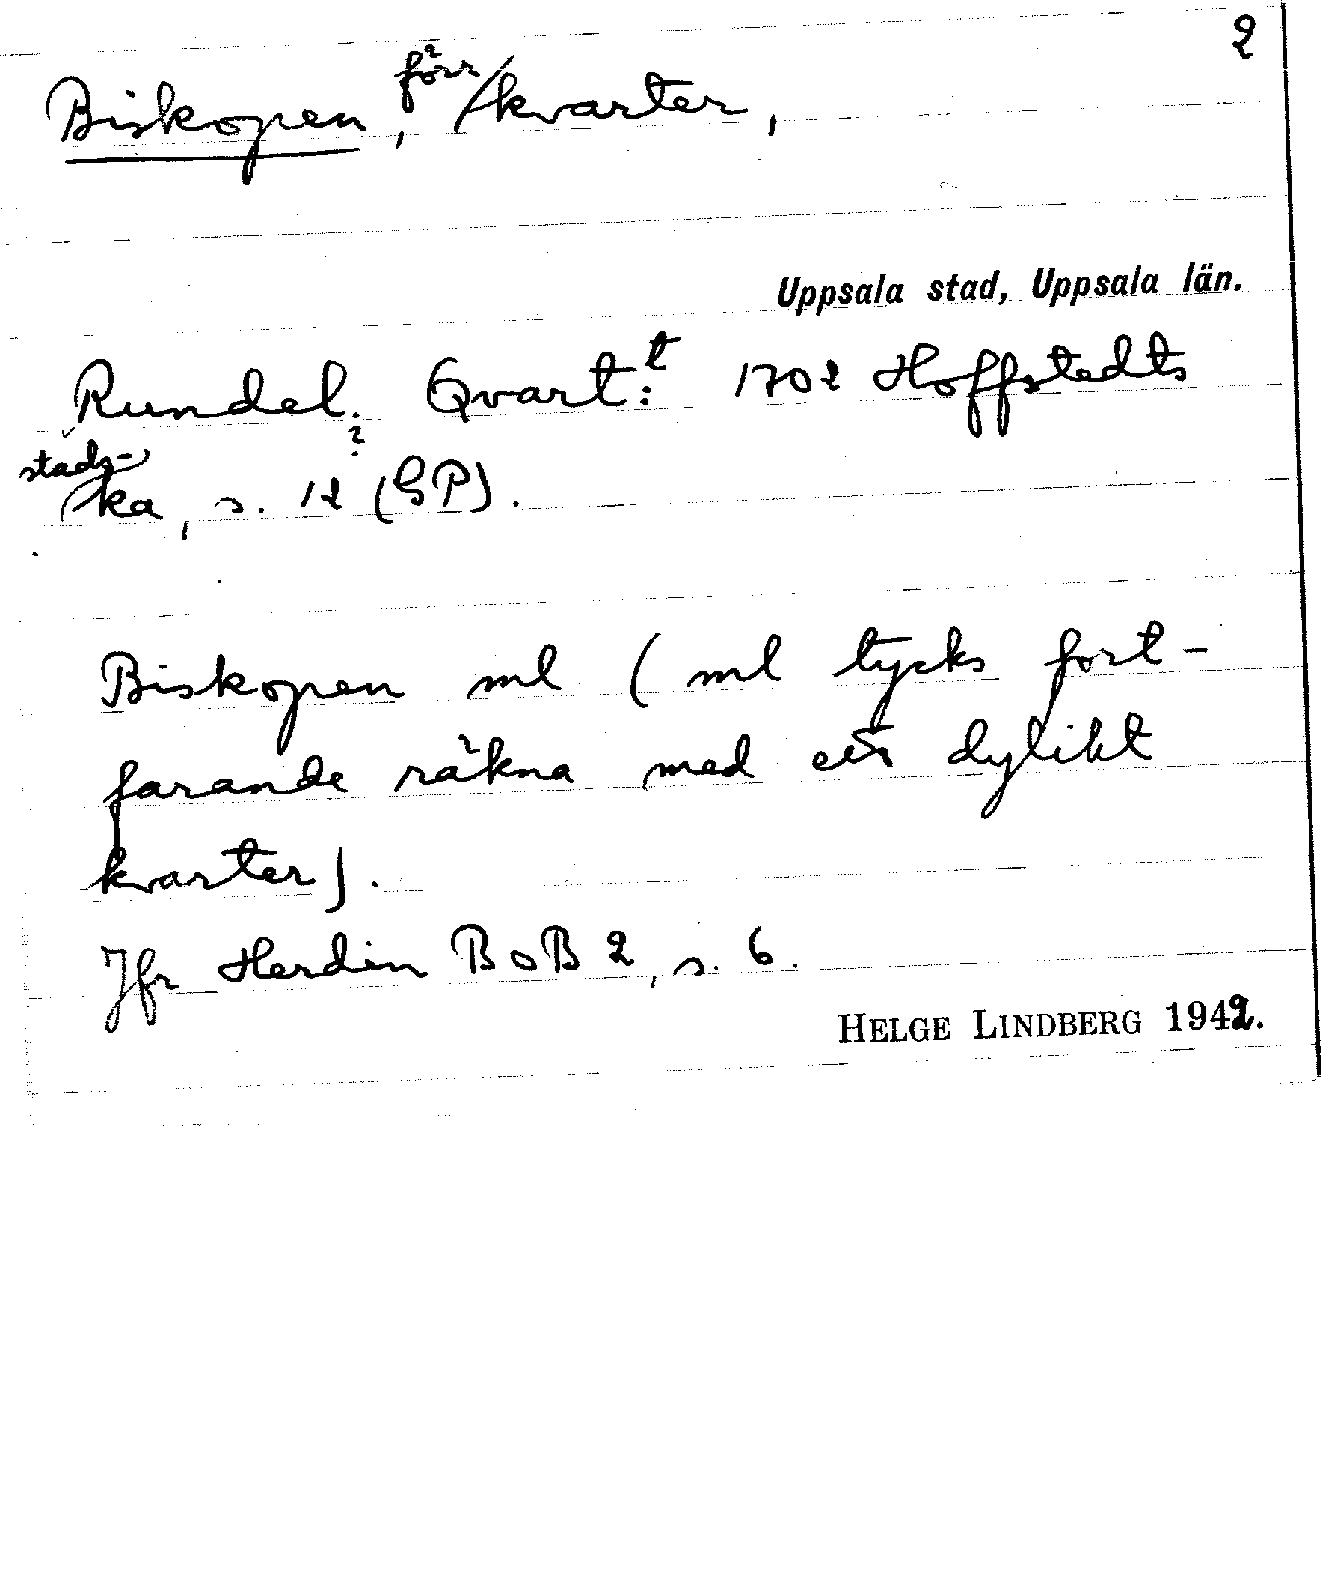 2
Biskopen, förr kvarter,
Uppsala stad, Uppsala län.
Rundel. Qvart:t 1702 Hoffstedts
stads-
ka, s. 12 (GP).
Biskopen ml (ml tycks fort-
farande räkna med ett dylikt
kvarter).
Jfr Herdin BoB 2, s. 6.
HELGE LINDBERG 1942.